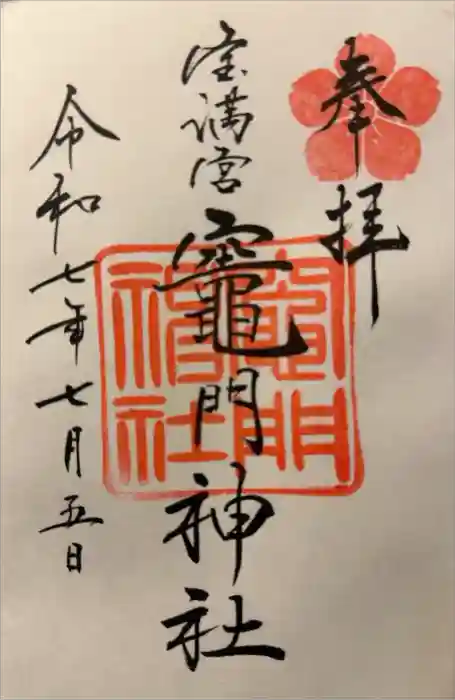 奉拝
宝満宮
竈門神社
竈門神社
令和七年七月五日